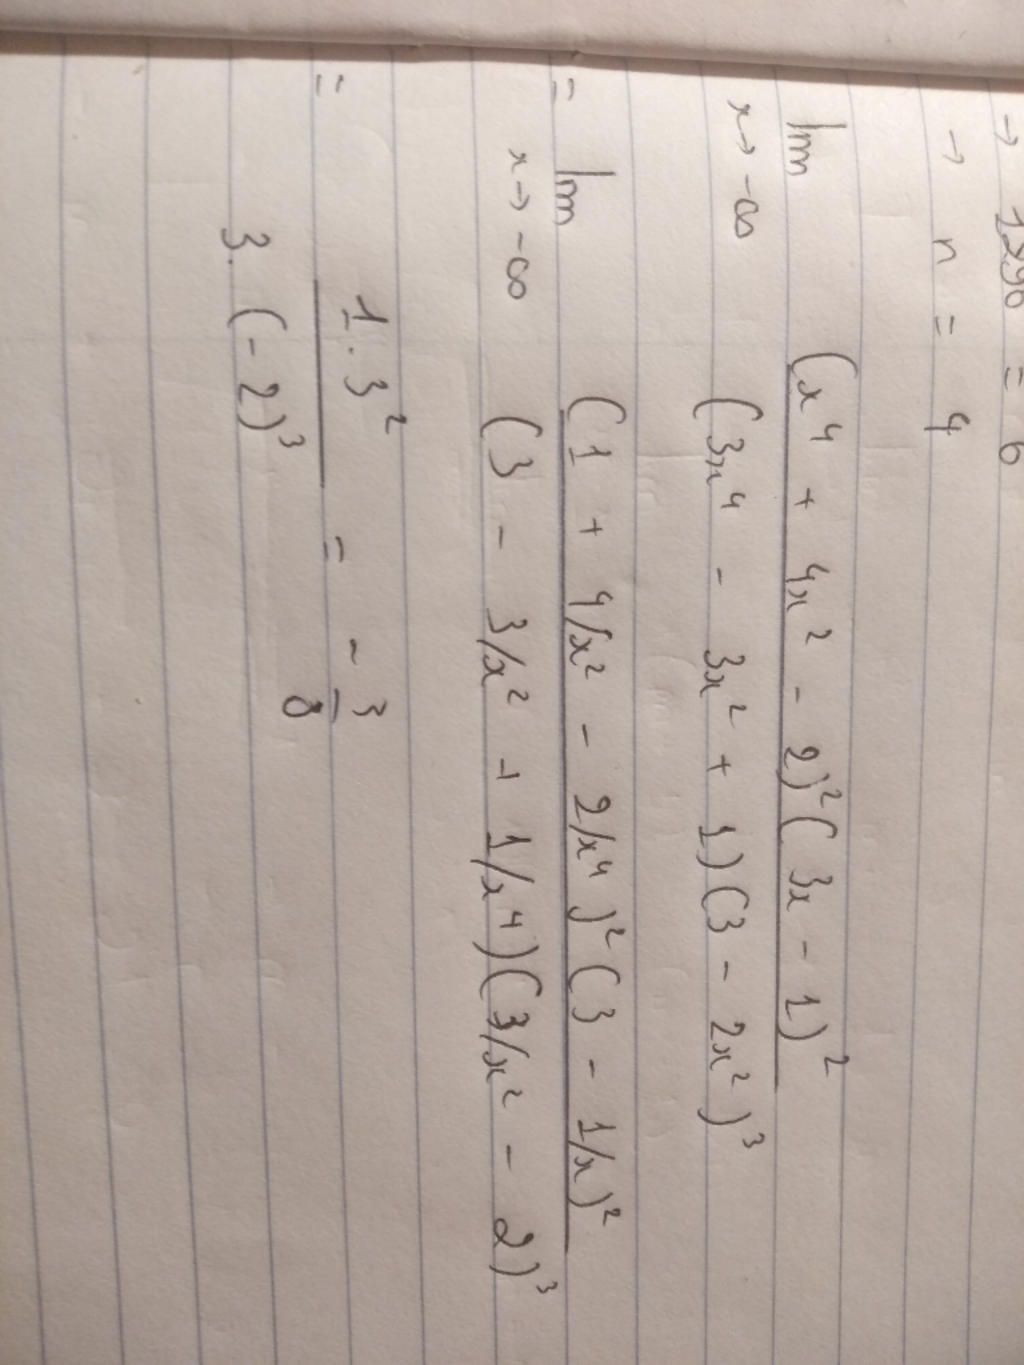 → 1296 = 6
→ n = 4
lim x→-∞ (x⁴ + 4x² - 2)²(3x - 1)²
(3x⁴ - 3x² + 1)(3 - 2x²)³
= lim x→-∞ (1 + 4/x² - 2/x⁴)²(3 - 1/x)²
(3 - 3/x² + 1/x⁴)(3/x² - 2)³
= 1.3² = -3
3.(-2)³ 8